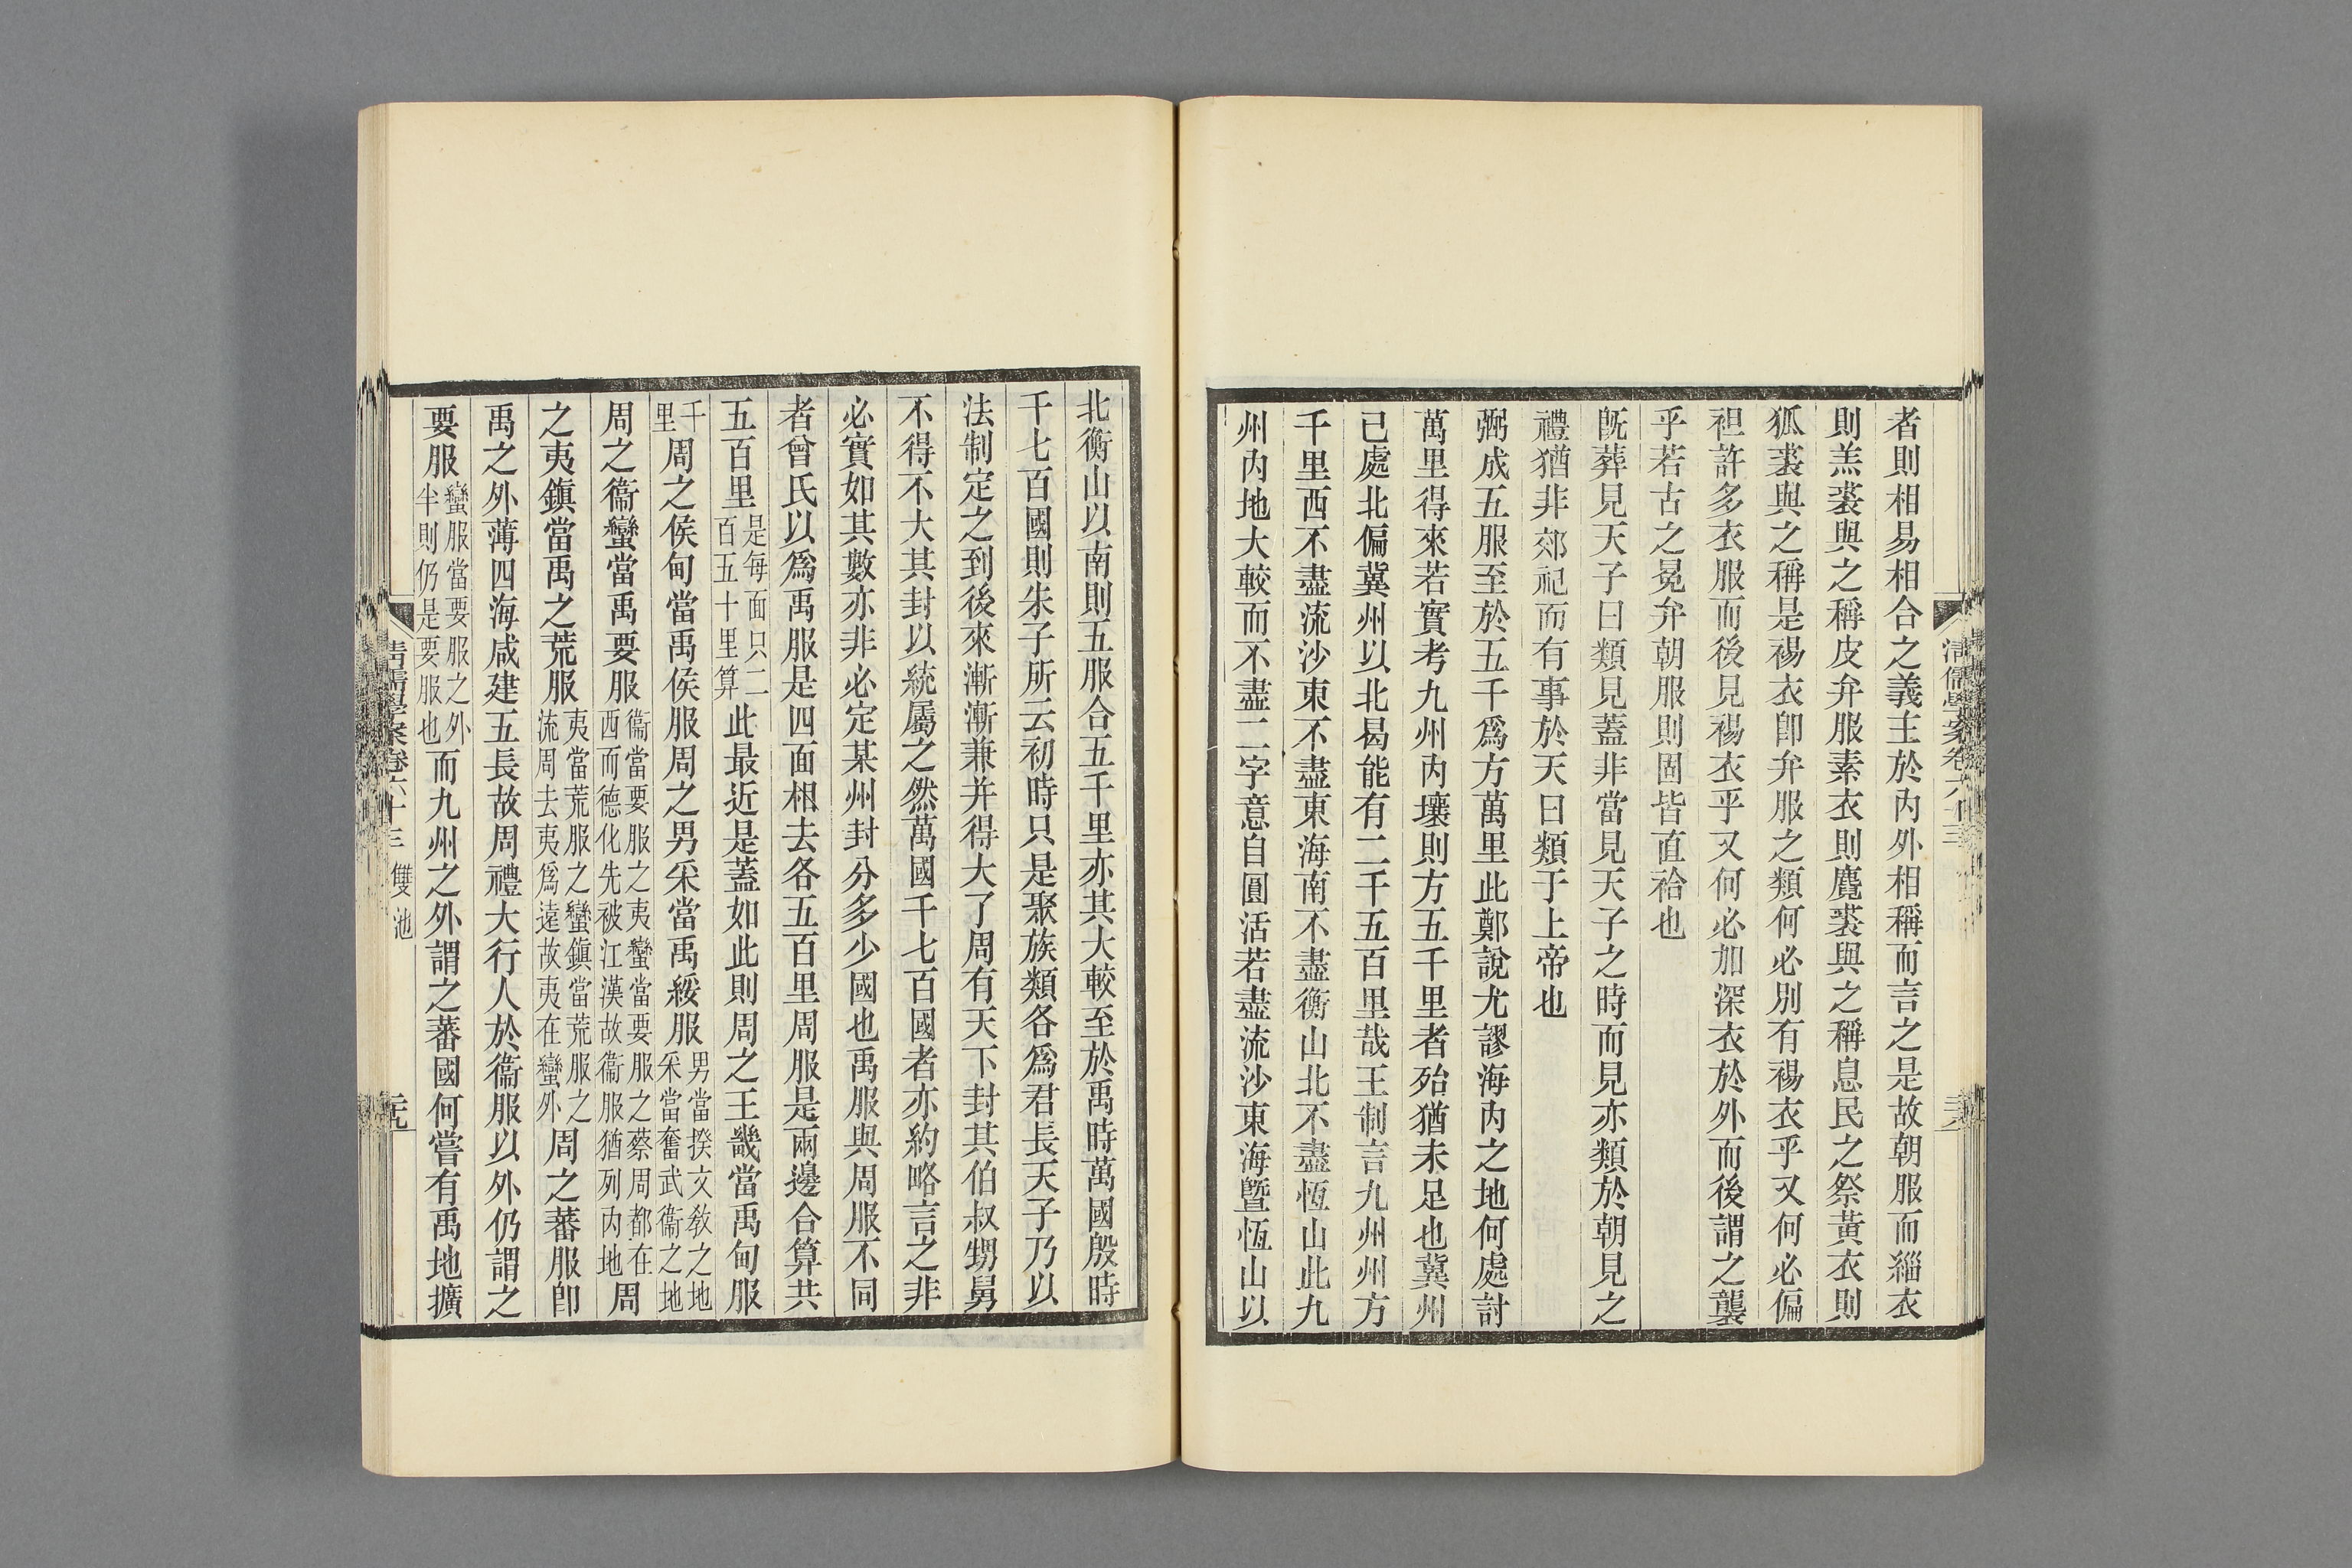 者則相易相合之義主於內外相稱而言之是故朝服而緇衣
則羔裘與之稱皮弁服素衣則麑裘與之稱息民之祭黃衣則
狐裘與之稱是裼衣卽弁服之類何必別有裼衣乎又何必偏
袒許多衣服而後見裼衣乎又何必加深衣於外而後謂之襲
乎若古之冕弁朝服則固皆直袷也
旣葬見天子曰類見蓋非當見天子之時而見亦類於朝見之
禮猶非郊祀而有事於天曰類于上帝也
弼成五服至於五千爲方萬里此鄭說尤謬海內之地何處討
萬里得來若實考九州內壤則方五千里者殆猶未足也冀州
己處北偏冀州以北曷能有二千五百里哉王制言九州州方
千里西不盡流沙東不盡東海南不盡衡山北不盡恆山此九
州內地大較而不盡二字意自圓活若盡流沙東海曁恆山以
清儒學案卷六十三
北衡山以南則五服合五千里亦其大較至於禹時萬國殷時
千七百國則朱子所云初時只是聚族類各爲君長天子乃以
法制定之到後來漸漸兼并得大了周有天下封其伯叔甥舅
不得不大其封以統屬之然萬國千七百國者亦約略言之非
必實如其數亦非必定某州封分多少國也禹服與周服不同
者曾氏以爲禹服是四面相去各五百里周服是兩邊合算共
五百里是每面只二百五十里算此最近是蓋如此則周之王畿當禹甸服
千里周之侯甸當禹侯服周之男采當禹綏服男當揆文敎之地采當奮武衞之地
周之衞蠻當禹要服衞當要服之夷蠻當要服之蔡周都在西而德化先被江漢故衞服猶列內地周
之夷鎭當禹之荒服夷當荒服之蠻鎭當荒服之流周去夷爲遠故夷在蠻外周之蕃服卽
禹之外薄四海咸建五長故周禮大行人於衞服以外仍謂之
要服蠻服當要服之外半則仍是要服也而九州之外謂之蕃國何嘗有禹地擴
清儒學案卷六十三
雙池